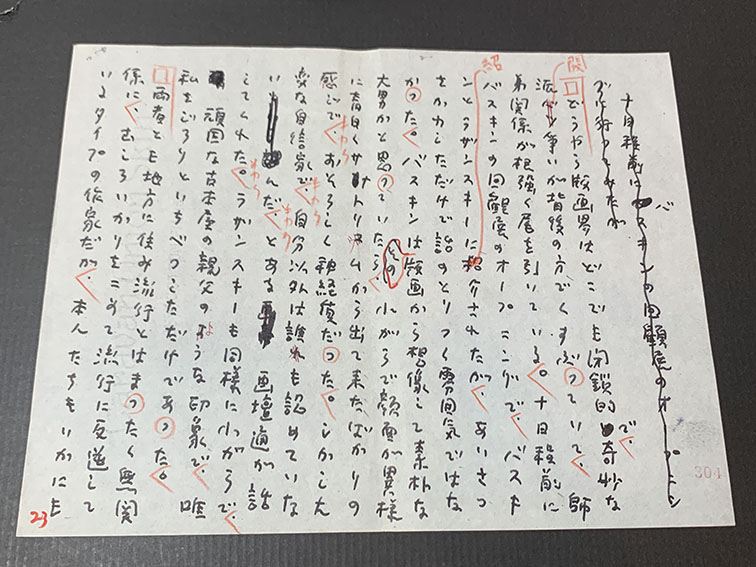 十日程前にバスキンの回顧展のオープニン
グに行ってみたが
開
どうやら版画界はどこでも閉鎖的で奇妙な
派バツ争いが背後の方でくすぶっていて、師
弟関係が根強く尾を引いている。十日程前に
バスキンの回顧展のオープニングで、バスキ
紹
ンとラザンスキーに紹介されたが、あいさつ
をかわしただけで話のとりつく雰囲気ではな
かった。バスキンは版画から想像して素朴な
大男かと思っていたら、その小がらで顔面が異様
に青白くサナトリャムから出て来たばかりの
感じで、おそろしく神経質だった。しかし
変な自信家で、自分以外は誰れも認めていな
いんだ、とある画壇通が話
してくれた。ラザンスキーも同様に小がらで、
頑固な古本屋の親父のような印象で、唯
私をじろりといちべつしただけであった。
両者とも地方に住み流行とはまったく無関
係に、むしろいかりをこめて流行に反逆して
いるタイプの作家だが、本人たちもいかにも
23
304